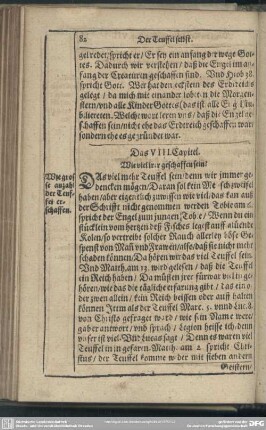 82 Der Teuffel selbst.
gel redet / spricht er / Er sey ein anfang der wege Got-
tes. Dadurch wir verstehen / daß die Engel im an-
fang der Creaturen geschaffen sind. Und Hiob 38.
spricht Gott. Wer hat den eckstein des Erdreichs
gelegt / da mich mit einander lobeten die Morgen-
stern / und alle Kinder Gottes (das ist alle Engel) ju-
bilierten. Welche wort leren uns / daß die Engel er-
schaffen sein / nicht ehe das Erdreich geschaffen war
sondern ehe es gegründet war.
Das VIII. Capitel.
Wie viel ihr geschaffen sein?
Wie gros-
se anzahl
der Teuf-
fel er-
schaffen.
Das viel mehr Teuffel sein / denn wir immer ge-
dencken mögen / Daran sol kein Mensch zweiffel
haben / aber eigentlich zuwissen wie viel / das kan auß
der Schrifft nicht genommen werden. Tobie am 6.
spricht der Engel zum jungen Tobie / Wenn du ein
stücklein vom hertzen des Fisches legest auff glüende
Kolen / so vertreibt solcher Rauch allerley böse Ge-
spenst von Mañ und Frawen / also / daß sie nicht mehr
schaden können. Da hören wir das viel Teuffel sein.
Und Matth. am 12. wird gelesen / daß die Teuffel
ein Reich haben / Da müssen ihr fürwar viel zu ge-
hören / wie das die tägliche erfarung gibt / das ein o-
der zween allein / kein Reich besitzen oder auff halten
können. Item als der Teuffel Marc. 5. und Luc. 8.
von Christo gefraget ward / wie sein Name were /
gab er antwort / und sprach / Legion heisse ich / denn
unser ist viel. Und Lucas sage / Denn es waren viel
Teuffel in in gefaren. Matth. am 12. spricht Chri-
stus / der Teuffel komme wider mit sieben andern
Geistern /